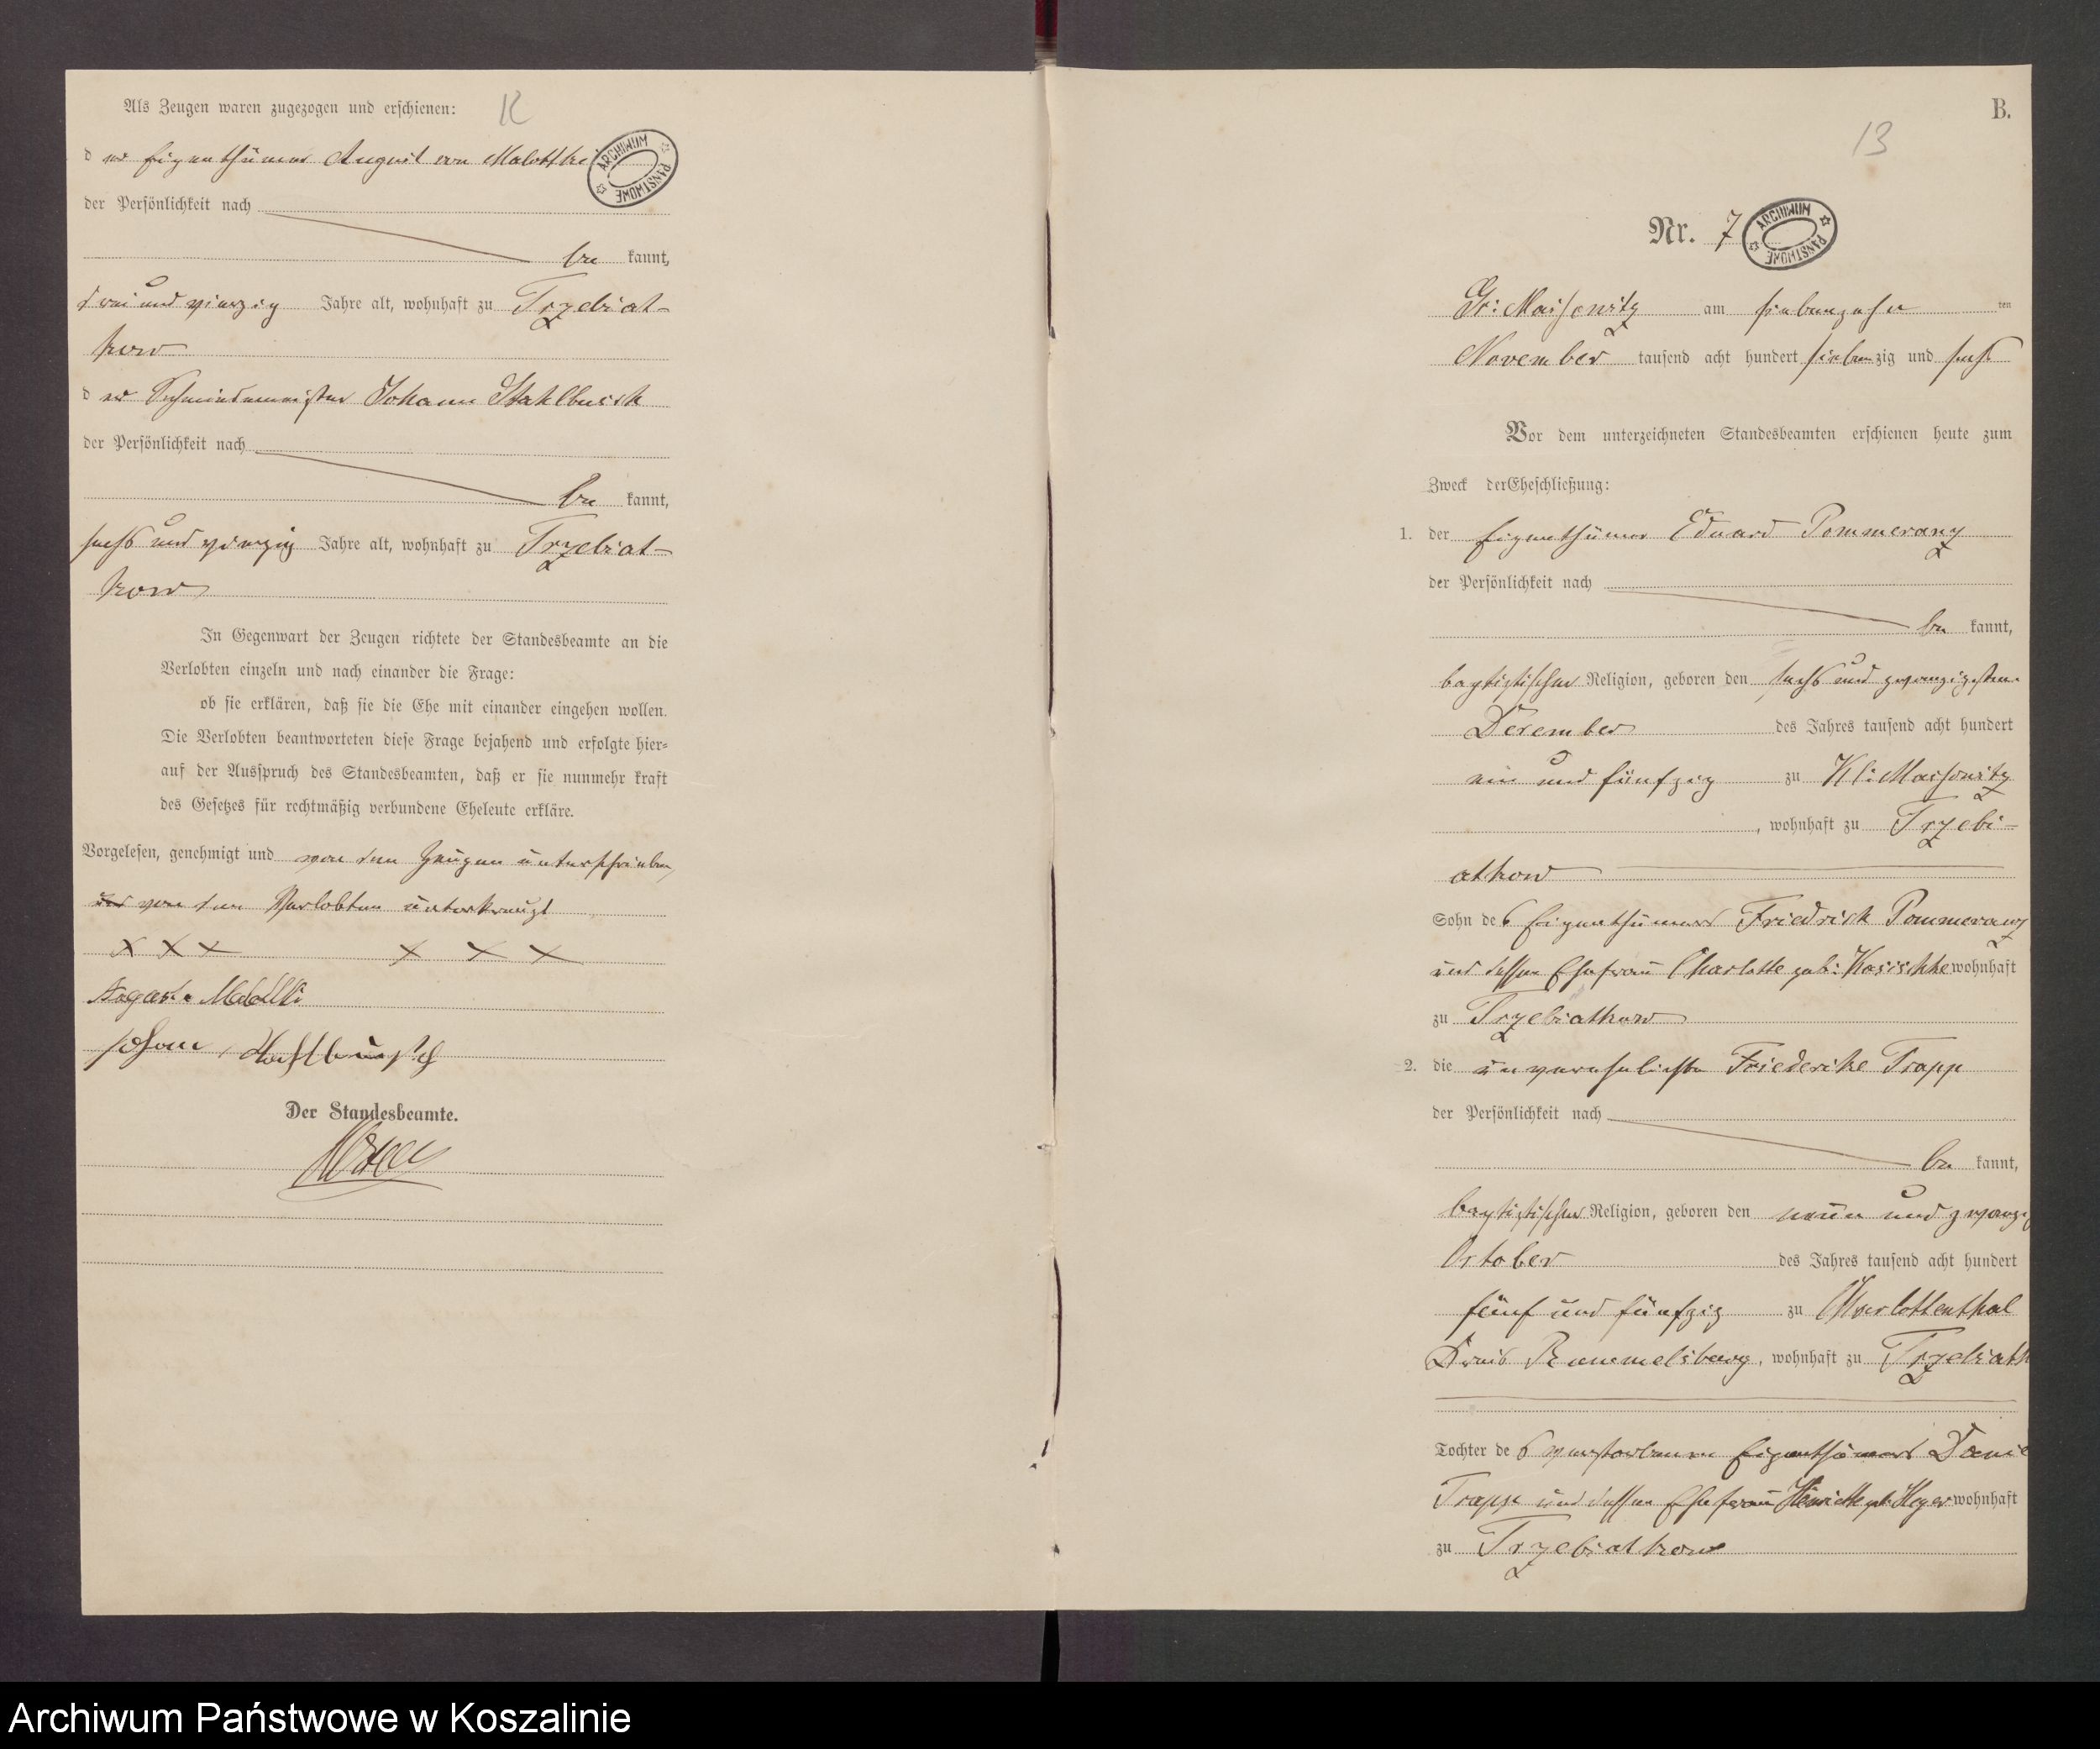 Als Zeugen waren zugezogen und erschienen:
12
der Eigenthümer August von Malottke
ARCHIWUM PAŃSTWOWE
der Persönlichkeit nach
be kannt,
drei und vierzig Jahre alt, wohnhaft zu Trzebiat-
kow
der Schmiedemeister Johann Stahlbusch
der Persönlichkeit nach
be kannt,
sechs und vierzig Jahre alt, wohnhaft zu Trzebiat-
kow
In Gegenwart der Zeugen richtete der Standesbeamte an die
Verlobten einzeln und nach einander die Frage:
ob sie erklären, daß sie die Ehe mit einander eingehen wollen.
Die Verlobten beantworteten diese Frage bejahend und erfolgte hier-
auf der Ausspruch des Standesbeamten, daß er sie nunmehr kraft
des Gesetzes für rechtmäßig verbundene Eheleute erkläre.
Vorgelesen, genehmigt und von den Zeugen unterschrieben,
und von den Verlobten unterkreuzt
X X X X X X
August v Malottki
Johann Stahlbusch
Der Standesbeamte.
B.
13
Nr. 7
ARCHIWUM PAŃSTWOWE
Gr: Massowitz am siebenzehn ten
November tausend acht hundert siebenzig und sechs
Vor dem unterzeichneten Standesbeamten erschienen heute zum
Zweck der Eheschließung:
1. der Eigenthümer Eduard Pommeranz
der Persönlichkeit nach
be kannt,
baptistischer Religion, geboren den sechs und zwanzigsten
December des Jahres tausend acht hundert
ein und fünfzig zu Kl: Massowitz
, wohnhaft zu Trzebi-
atkow
Sohn des Eigenthümers Friedrich Pommeranz
und dessen Ehefrau Charlotte geb: Kosischke wohnhaft
zu Trzebiatkow
2. die unverehelichte Friederike Trapp
der Persönlichkeit nach
be kannt,
baptistischer Religion, geboren den neun und zwanzig
October des Jahres tausend acht hundert
fünf und fünfzig zu Charlottenthal
Kreis Rummelsburg, wohnhaft zu Trzebiatk
Tochter des verstorbenen Eigenthümers Danie
Trapp und dessen Ehefrau Henriette geb: Heyer wohnhaft
zu Trzebiatkow
Archiwum Państwowe w Koszalinie